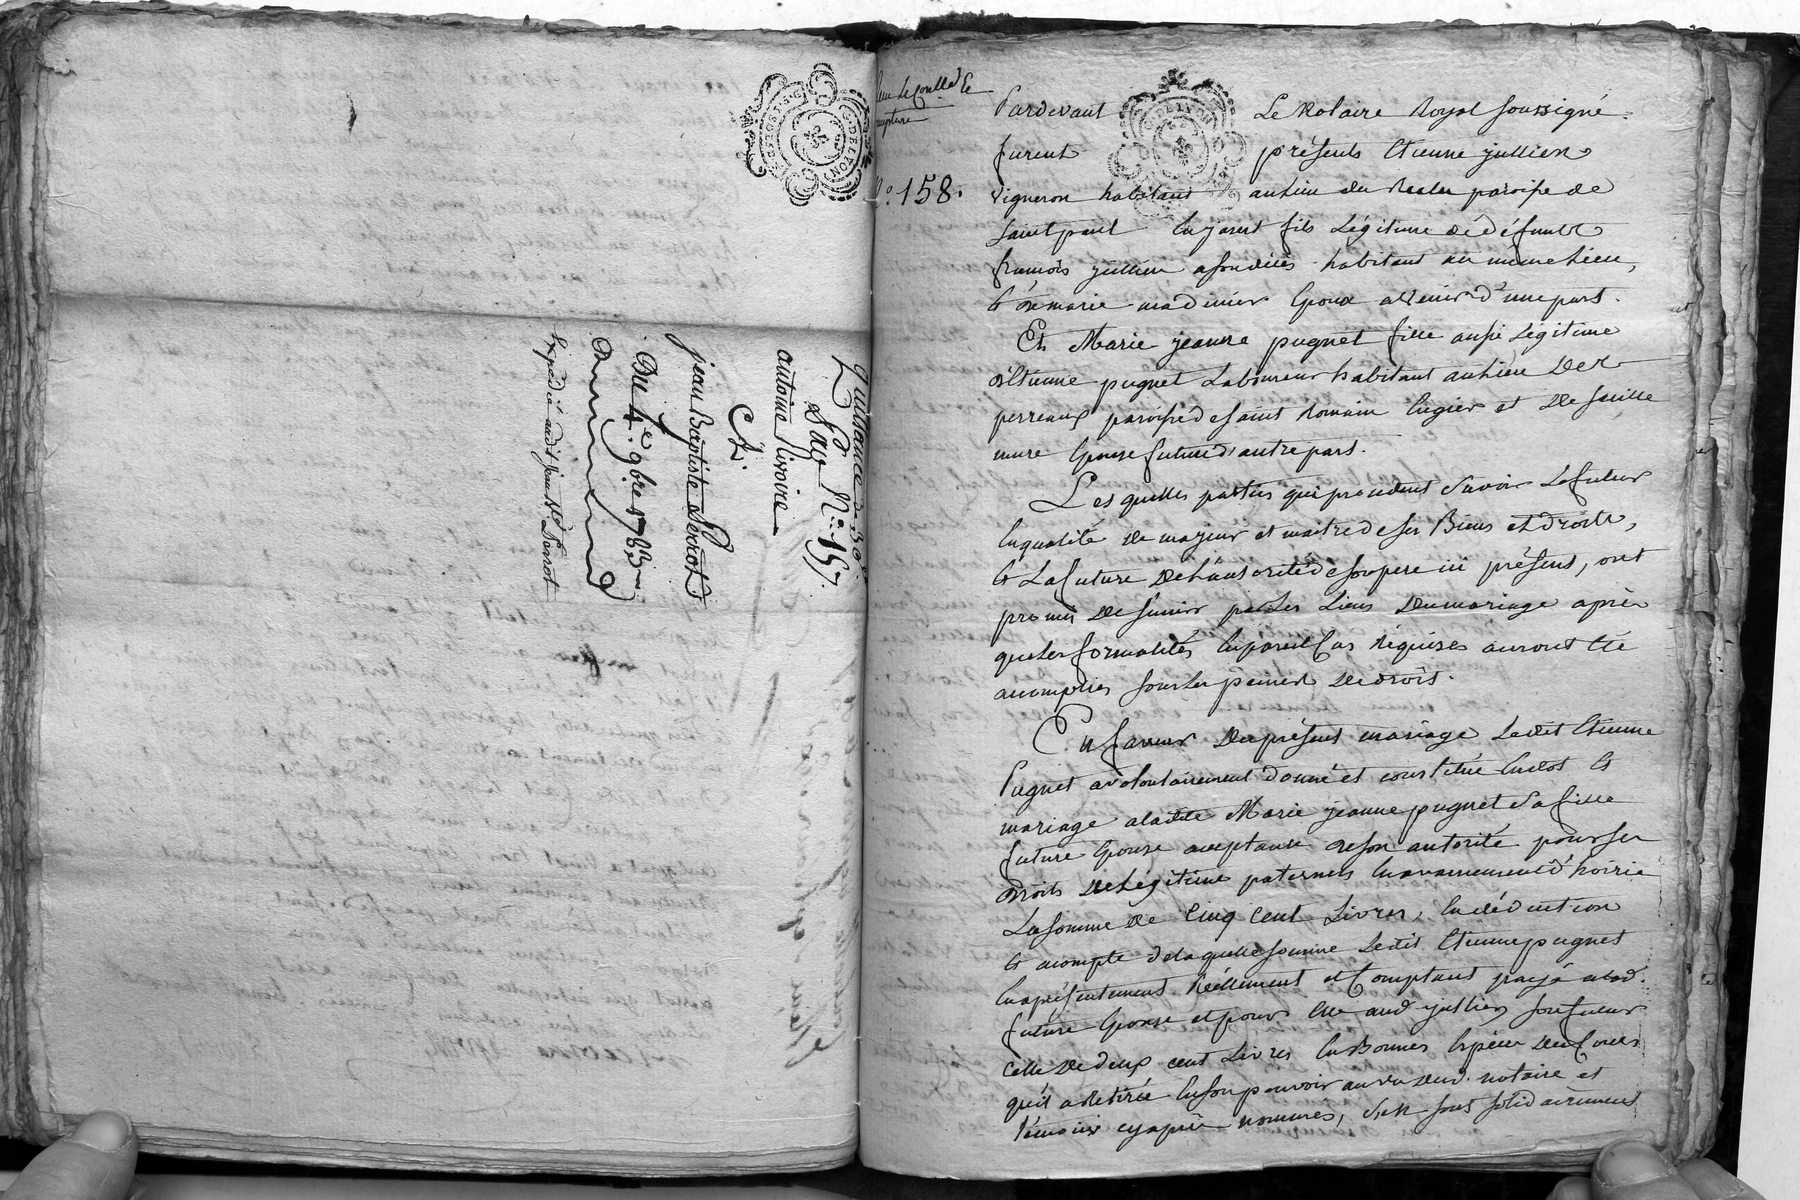 Quittance de 30#
Sav N.º 157.
antoine Vivoire
Et.
jean Baptiste Perrot
Du 4.e 9bre 1783
Expédié audit jean Bte Perrot
G. DE LYON
Nº 158.
Pardevant Le Notaire Royal soussigné
furent présents Etienne jullien
vigneron habitant au lieu du paroisse de
saint paul en jarest fils Légitime de défunt
francois jullien habitant au même Lieu,
Et de marie madinier Epoux avenir d'une part.
Et Marie jeanne pugnet fille aussi Légitime
d'Etienne pugnet Laboureur habitant au Lieu Des
perreaux paroisse de saint Romain et De
mure Epouse future d'autre part.
Les quelles parties qui procedent savoir Le futur
En qualité de majeur et maitre de ses Biens et droits,
Et La future De L'autorité de son pere ici présent, ont
promis De s'unir par Les Liens du mariage après
que Les formalités En pareil Cas Réquises auront Eté
accomplies sous Les peines De droit.
En faveur Du présent mariage Ledit Etienne
Pugnet a volontairement donné et constitué En dot Et
mariage a ladite Marie jeanne pugnet sa fille
future Epouse acceptante de son autorité pour ses
Droits De Légitime paternels En avancement d'hoirie
La somme de Cinq Cent Livres, En déduction
Et acompte de laquelle somme Ledit Etienne pugnet
En a présentement Réellement et Comptant payé a lad.
future Epouse et pour Elle aud. jullien son futur
Celle De deux cent Livres En Bonnes Espéces Du Cours
qu'il a Retirée En son pouvoir au vu Dud. notaire et
témoins cyaprès nommés, d'en sont solidairement